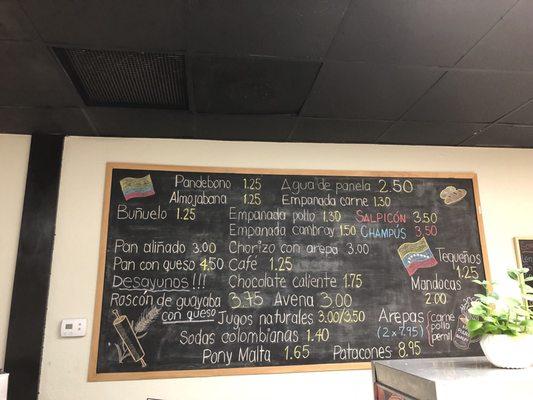 Pandebono 1.25
Almojabana 1.25
Buñuelo 1.25
Agua de panela 2.50
Empanada carne 1.30
Empanada pollo 1.30
Empanada cambray 1.50
SALPICÓN 3.50
CHAMPÚS 3.50
Pan aliñado 3.00
Pan con queso 4.50
Desayunos!!!
Chorizo con arepa 3.00
Café 1.25
Chocolate caliente 1.75
Tequeños 1.25
Mandocas 2.00
Roscón de guayaba 3.75
con queso
Avena 3.00
Jugos naturales 3.00/3.50
Sodas colombianas 1.40
Pony Malta 1.65
Patacones 8.95
Arepas
(2 x 7.95)
carne
pollo
pernil